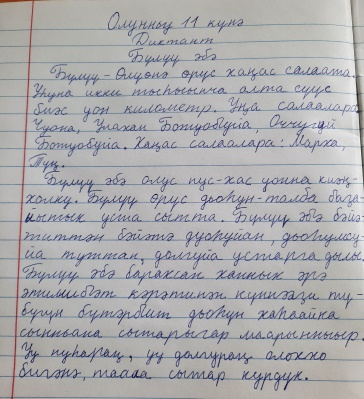 Олунньу 11 күнэ
Диктант
Бүлүү эбэ
Бүлүү-Өлүөнэ өрүс хаҥас салаата.
Уһуна икки тыһыынча алта сүүс
биэс уон километр. Уҥа салаалара
Чуона, Улахан Ботуобуйа, Оччугуй
Ботуобуйа. Хаҥас салаалара: Марха,
Түҥ.
Бүлүү эбэ олус нус-хас уонна киэҥ-
холку. Бүлүү өрүс дьоһун-талба
уста сытта. Бүлүү эбэ бэйэ-
титтэн бэйэтэ дуоһуйан,
туттан, долгуйа устарга дылы.
Бүлүү эбэ барахсан ханнык эрэ
кэрэтинэн
бүтэрбит дьоһун хаһаайка
сынньана сытарыгар маарынныыр.
Уу нуһараҥ, уу долгураҥ олохто
бигэнэ, таала сытар курдук.